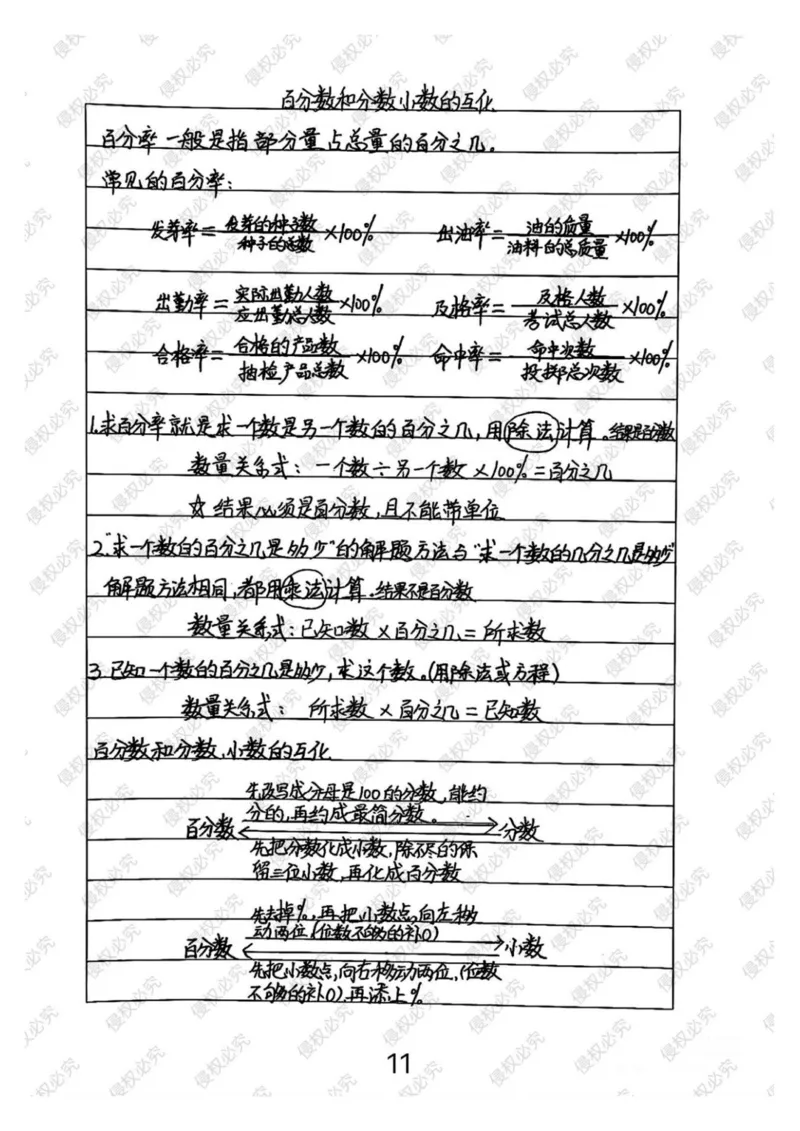 百分数和分数、小数的互化
百分率一般是指部分量占总量的百分之几。
常见的百分率：
发芽率＝发芽的种子数/种子的总数×100% 出油率＝油的质量/油料的总质量×100%
出勤率＝实际出勤人数/应出勤总人数×100% 及格率＝及格人数/考试总人数×100%
合格率＝合格的产品数/抽检产品总数×100% 命中率＝命中次数/投掷总次数×100%
1.求百分率就是求一个数是另一个数的百分之几,用除法计算。结果是百分数
数量关系式：一个数÷另一个数×100%＝百分之几
☆结果必须是百分数,且不能带单位
2.“求一个数的百分之几是多少”的解题方法与“求一个数的几分之几是多少”
解题方法相同,都用乘法计算。结果不是百分数
数量关系式：已知数×百分之几＝所求数
3.已知一个数的百分之几是多少,求这个数。(用除法或方程)
数量关系式：所求数×百分之几＝已知数
百分数和分数、小数的互化
先改写成分母是100的分数,能约
分的,再约成最简分数。
百分数 分数
先把分数化成小数,除不尽的保
留三位小数,再化成百分数
先去掉%,再把小数点向左移
动两位(位数不够的补0)
百分数 小数
先把小数点,向右移动两位,(位数
不够的补0),再添上%
11
侵权必究